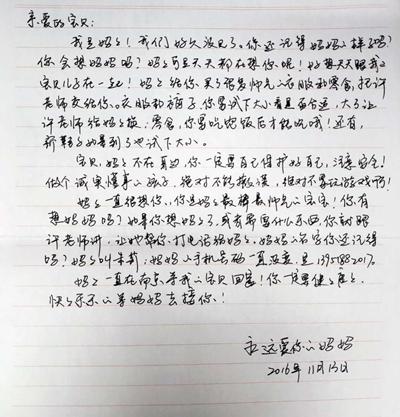 亲爱的宝贝:
我是妈妈!我们好久没见了。你还记得妈妈的样子吗?
你会想妈妈吗?妈妈可是天天都在想你呢!好想天天跟我的
宝贝儿子在一起!妈妈给你买了很多帅气的衣服和零食,托
许老师交给你。衣服和裤子你要试下大小看是否合适,大了让
许老师给妈妈换;零食,你要吃完饭后才能吃哦!还有,
新鞋子如果到了也试下大小。
宝贝,妈妈不在身边,你一定要自己保护好自己,注意安全!
做个诚实懂事的孩子,绝对不能撒谎,绝对不要玩游戏啊!
妈妈一直很想你,你是妈妈最棒最帅气的宝宝!你有
想妈妈吗?如果你想妈妈了,或者需要什么东西,你就跟
许老师讲,让她帮你打电话给妈妈。妈妈的名字你还记得
吗?妈妈叫朱莉;妈妈的手机号码一直还是
妈妈一直在南京等我的宝贝回家!你一定要健健康康、
快快乐乐的等妈妈去接你!
永远爱你的妈妈
2016年11月13日